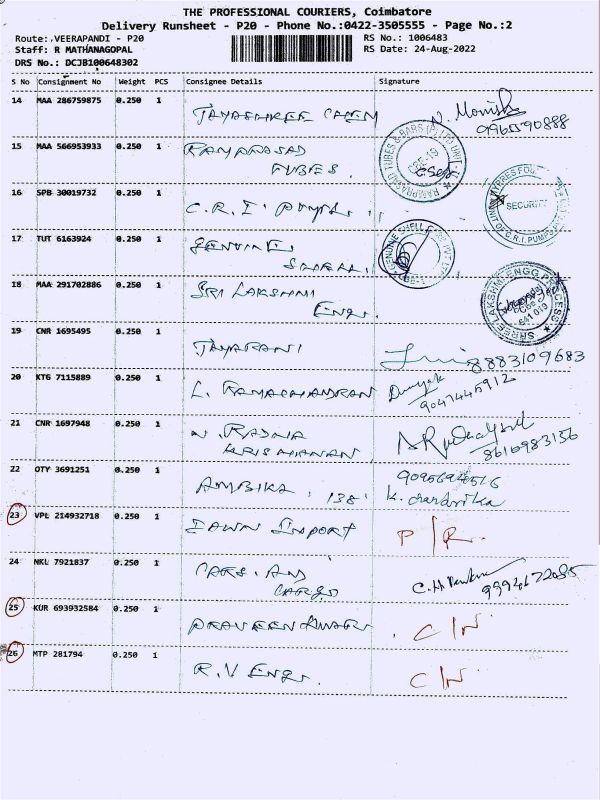 THE PROFESSIONAL COURIERS, Coimbatore
Delivery Runsheet - P20 - Phone No.:0422-3505555 - Page No.:2
Route: VEERAPANDI - P20
RS No.: 1006483
Staff: R MATHANAGOPAL
RS Date: 24-Aug-2022
DRS No.: DCJB100648302
S No Consignment No Weight PCS Consignee Details Signature
14 MAA 286759875 0.250 1 JAYASHREE CHEM
15 MAA 566953933 0.250 1 RAMPRASAD
TUBES.
16 SPB 30019732 0.250 1 C.R.I PUMPS
SECURITY
17 TUT 6163924 0.250 1 GENUINE
SHELL
18 MAA 291702886 0.250 1 SRI LAKSHMI
ENGG.
641 019
19 CNR 1695495 0.250 1 JAYARANI 8883109683
20 KTG 7115889 0.250 1 L. RAMACHANDRAN
9047445912
21 CNR 1697948 0.250 1 N. RADHA
KRISHANAN 8610983156
22 OTY 3691251 0.250 1 AMBIKA, 138
K. chandrika
23 VPL 214932718 0.250 1 DAWN IMPORT P/R.
24 NKL 7921837 0.250 1 CARS. AND
CARGO
25 KUR 693932584 0.250 1 PRAVEEN KUMAR. C/N
26 MTP 281794 0.250 1 R.V ENGG. C/N